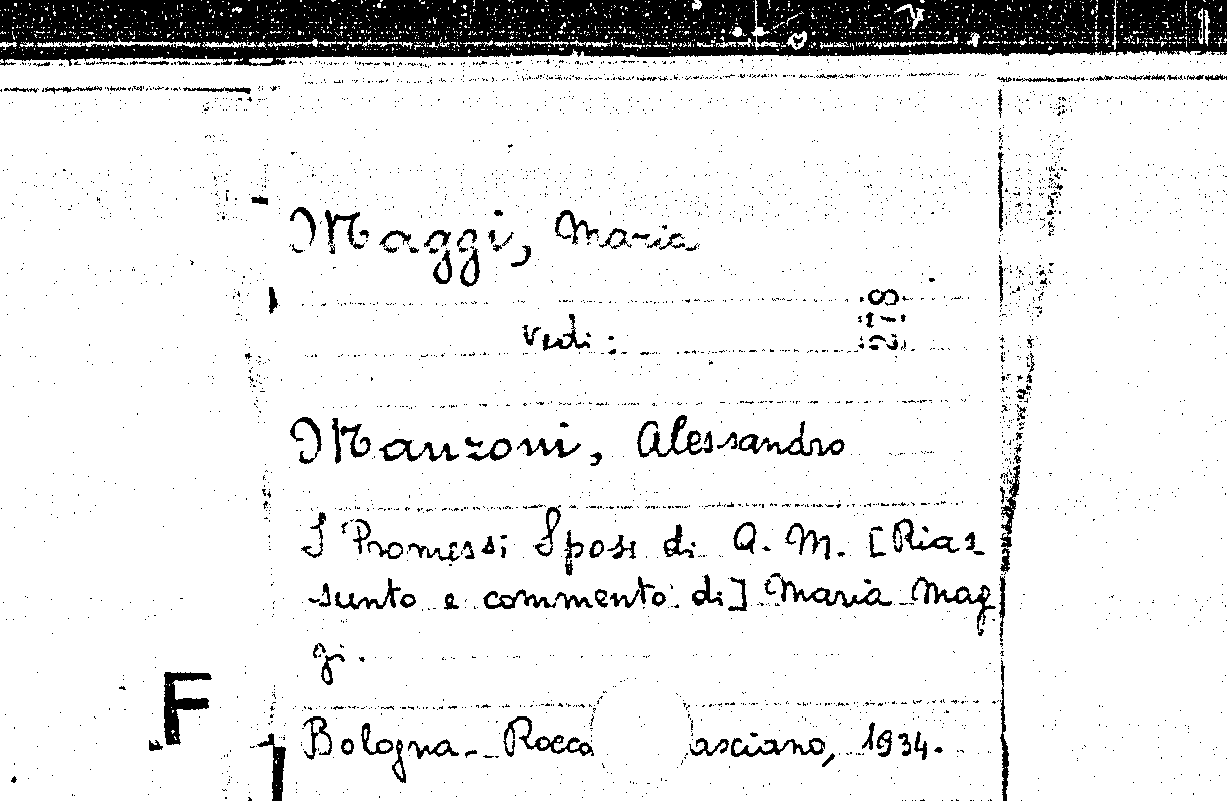 Maggi, Maria
vedi:
218
Manzoni, Alessandro
I Promessi Sposi di A. M. [Rias
sunto e commento di] Maria Mag
gi.
F
Bologna - Rocca asciano, 1934.